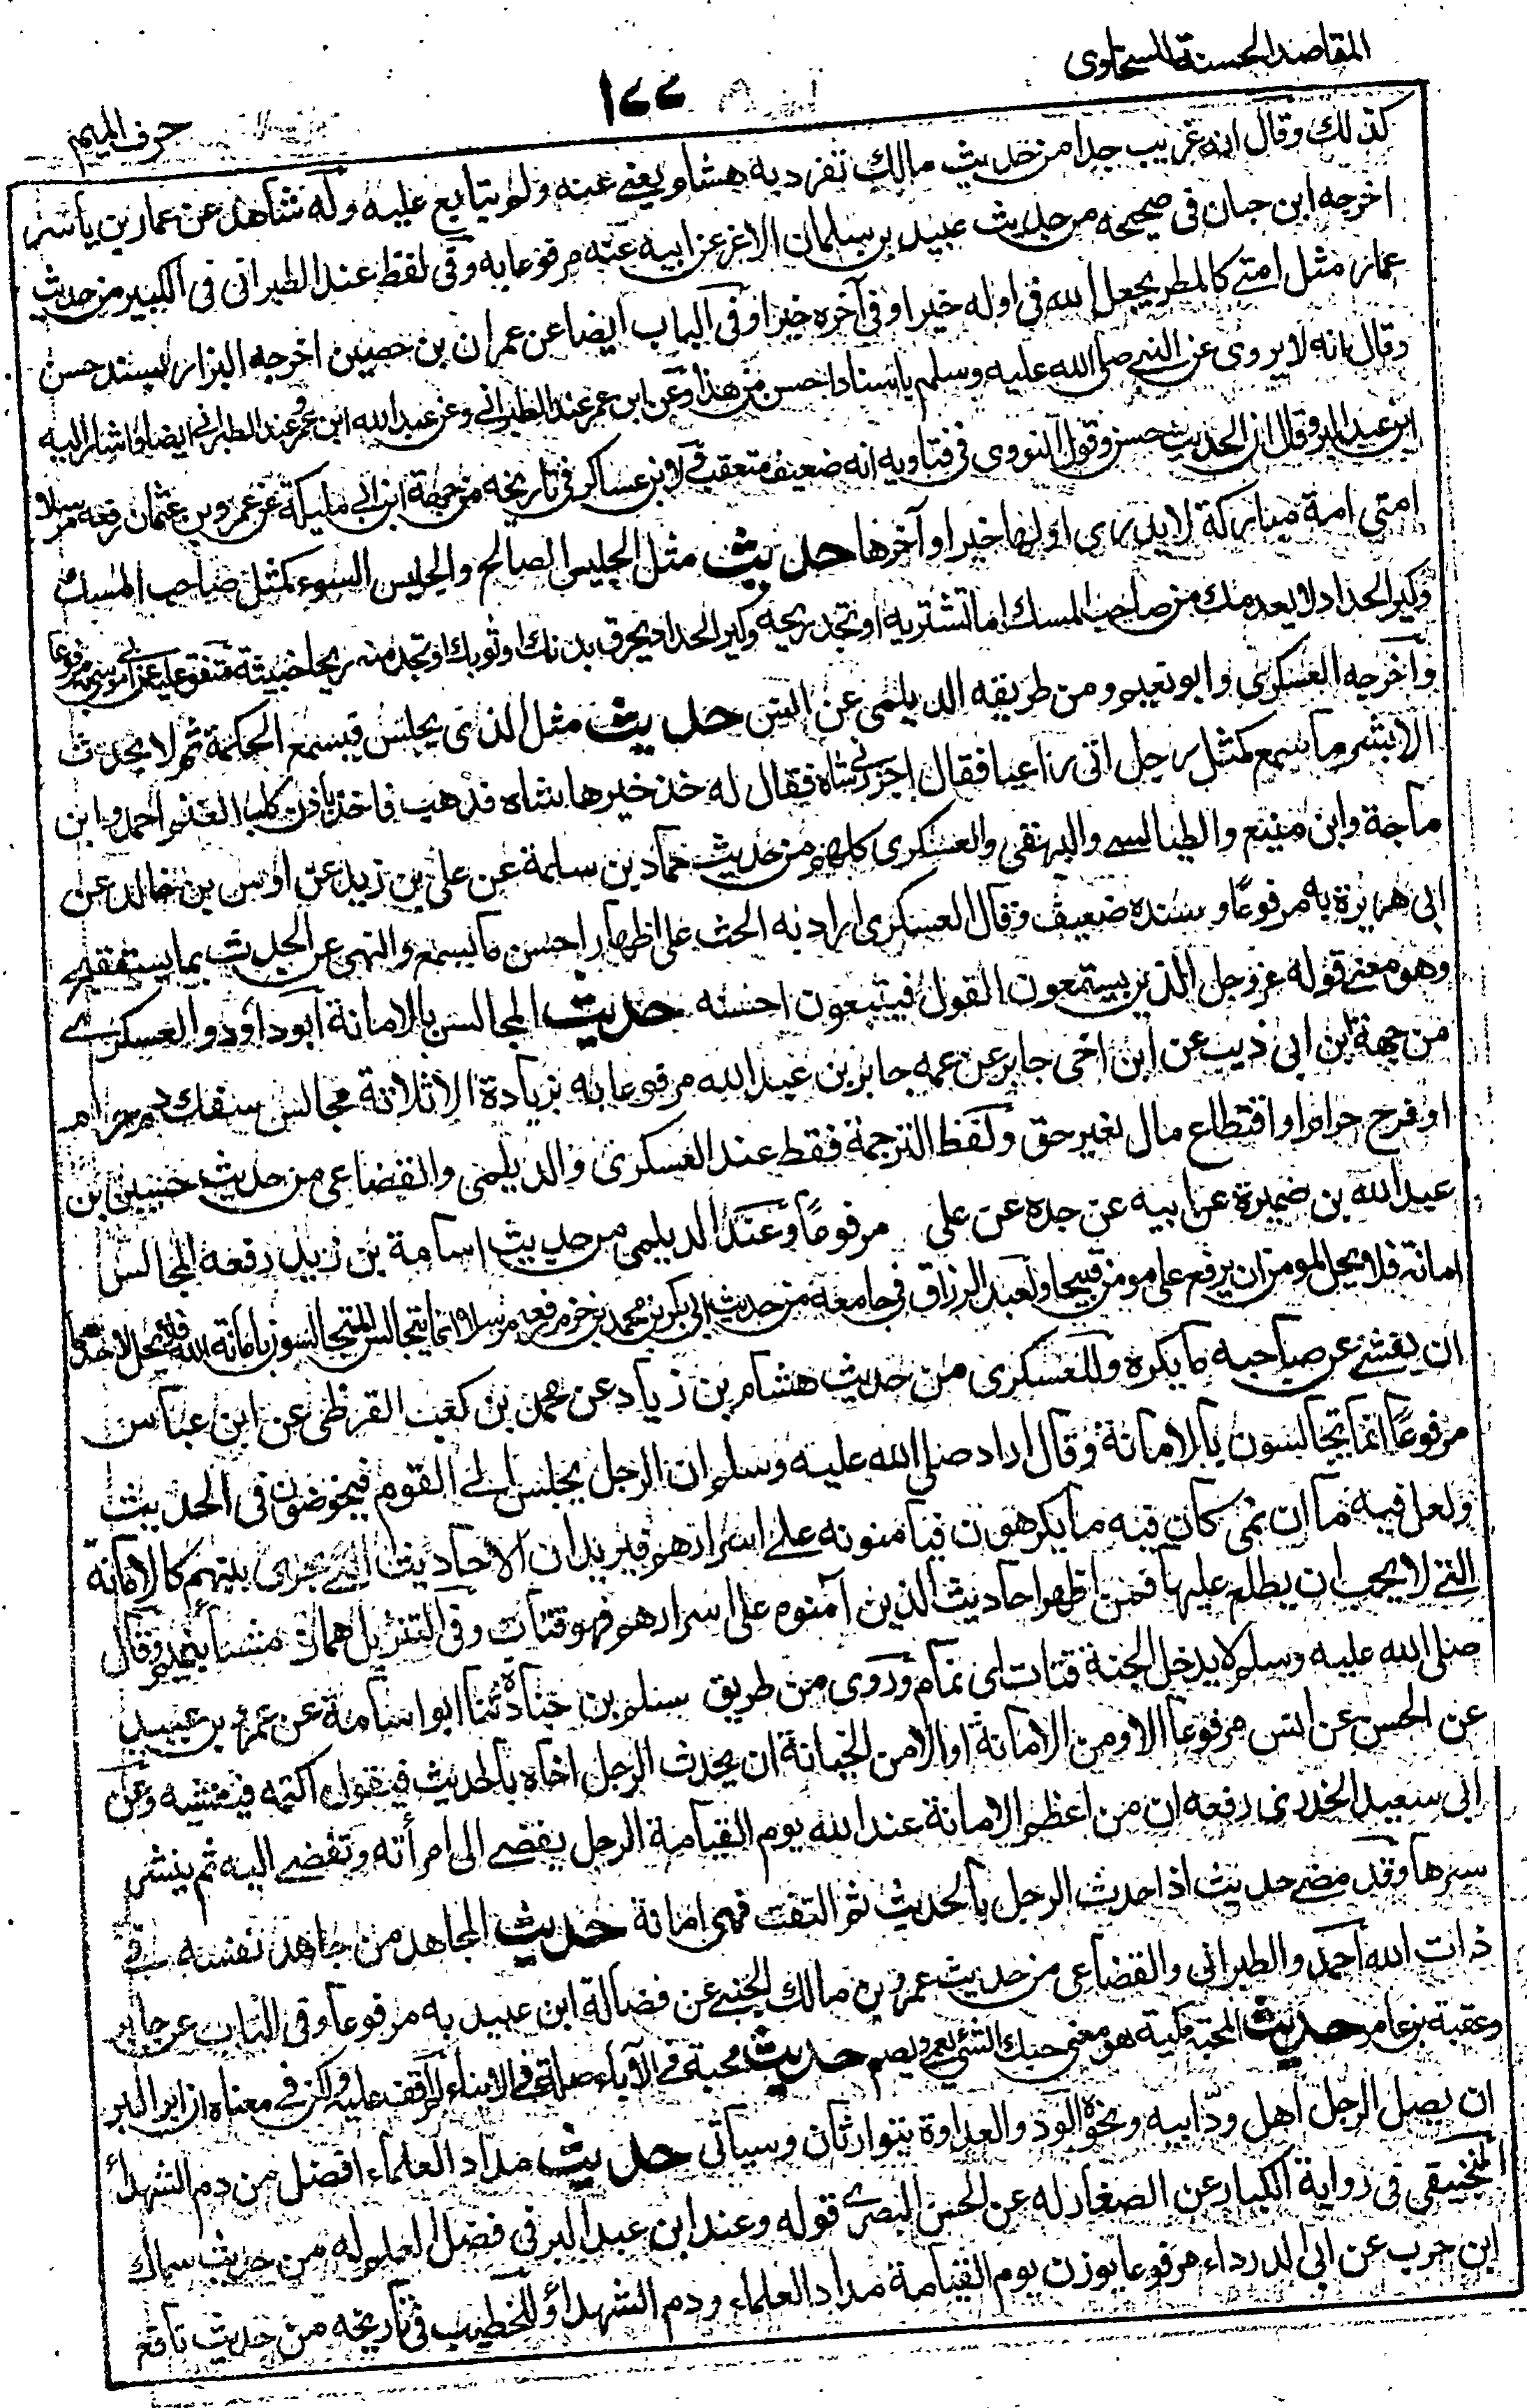 المقاصد الحسنة للسخاوى
١٧٧
حرف الميم
كذلك وقال انه غريب جدا من حديث مالك تفرد به هشام يعنى عنه ولم يتابع عليه وله شاهد عن عمار بن ياسر
اخرجه ابن حبان فى صحيحه من حديث عبيد بن سلمان الاغر عن ابيه عنه مرفوعا به وفى لفظ عند الطبرانى فى الكبير من حديث
عمار مثل امتى كالمطر يجعل الله فى اوله خيرا وفى آخره خيرا وفى الباب ايضا عن عمران بن حصين اخرجه البزار بسند حسن
وقال انه لا يروى عن النبى صلى الله عليه وسلم باسناد احسن من هذا وعن ابن عمر عند الطبرانى وعن عبد الله ابن عمرو عند الطبرانى ايضا واشار اليه
ابن عبد البر وقال ان الحديث حسن وقول النووى فى فتاويه انه ضعيف متعقب ولابن عساكر فى تاريخه من جهة ابن ابى مليكة عن عمرو بن عثمان رفعه مرسلا
امتى امة مباركة لا يدرى اولها خير او آخرها حديث مثل الجليس الصالح والجليس السوء كمثل صاحب المسك
وكير الحداد لا يعدمك من صاحب المسك اما تشتريه او تجد ريحه وكير الحداد يحرق بدنك او ثوبك او تجد منه ريحا خبيثة متفق عليه عن ابى موسى به مرفوعا
وآخرجه العسكرى وابو نعيم ومن طريقه الديلمى عن انس حديث مثل الذى يجلس فيسمع الحكمة ثم لا يحدث
الا بشر ما سمع كمثل رجل اتى راعيا فقال اجزرنى شاة فقال له خذ خيرها شاة فذهب فاخذ باذن كلب الغنم احمد وابن
ماجة وابن منيع والطيالسى والبيهقى والعسكرى كلهم من حديث حماد بن سلمة عن على بن زيد عن اوس بن خالد عن
ابى هريرة به مرفوعا وسنده ضعيف وقال العسكرى اراد به الحث على اظهار احسن ما يسمع والنهى عن الحديث بما يستقبح
وهو معنى قوله عز وجل الذين يستمعون القول فيتبعون احسنه حديث المجالس بالامانة ابو داود والعسكرى
من جهة ابن ابى ذيب عن ابن اخى جابر عن عمه جابر بن عبد الله مرفوعا به بزيادة الا ثلاثة مجالس سفك دم حرام
او فرج حرام او اقتطاع مال بغير حق ولفظ الترجمة فقط عند العسكرى والديلمى والقضاعى من حديث حسين بن
عبد الله بن ضميرة عن ابيه عن جده عن على مرفوعا وعند الديلمى من حديث اسامة بن زيد رفعه المجالس
امانة فلا يحل لمومن ان يرفع على مومن قبيحا ولعبد الرزاق فى جامعه من حديث ابى بكر بن محمد بن حزم رفعه مرسلا انما يتجالس المتجالسون بامانة الله فلا يحل لاحد
ان يفشى عن صاحبه ما يكره وللعسكرى من حديث هشام بن زياد عن محمد بن كعب القرظى عن ابن عباس
مرفوعا انما تجالسون بالامانة وقال اراد صلى الله عليه وسلم ان الرجل يجلس الى القوم فيخوضون فى الحديث
ولعل فيه ما ان نمى كان فيه ما يكرهون فيامنونه على اسرارهم فيريد ان الاحاديث التى تجرى بينهم كالامانة
التى لا يحب ان يطلع عليها فمن اظهر احاديث الذين آمنوه على اسرارهم فهو قتات وفى التنزيل هماز مشاء بنميم وقال
صلى الله عليه وسلم لا يدخل الجنة قتات اى نمام وروى من طريق سلم بن جنادة ثنا ابو اسامة عن عمرو بن عبيد
عن الحسن عن انس مرفوعا الا ومن الامانة او الا من الخيانة ان يحدث الرجل اخاه بالحديث فيقول اكتمه فيفشيه وعن
ابى سعيد الخدرى رفعه ان من اعظم الامانة عند الله يوم القيامة الرجل يفضى الى امرأته وتفضى اليه ثم ينشر
سرها وقد مضى حديث اذا حدث الرجل بالحديث ثم التفت فهى امانة حديث المجاهد من جاهد نفسه فى
ذات الله احمد والطبرانى والقضاعى من حديث عمرو بن مالك الجنبى عن فضالة ابن عبيد به مرفوعا وفى الباب عن جابر
وعقبة بن عامر حديث المحبة مكبة هو معنى حبك الشئ يعمى ويصم حديث محبة فى الآباء صلة فى الابناء لم اقف عليه ولكن فى معناه ان ابر البر
ان يصل الرجل اهل ود ابيه ونحوه الود والعداوة يتوارثان وسياتى حديث مداد العلماء افضل من دم الشهداء
المنجنيقى فى رواية الكبار عن الصغار له عن الحسن البصرى قوله وعند ابن عبد البر فى فضل العلم له من حديث سماك
ابن حرب عن ابى الدرداء مرفوعا يوزن يوم القيامة مداد العلماء ودم الشهداء وللخطيب فى تاريخه من حديث نافع